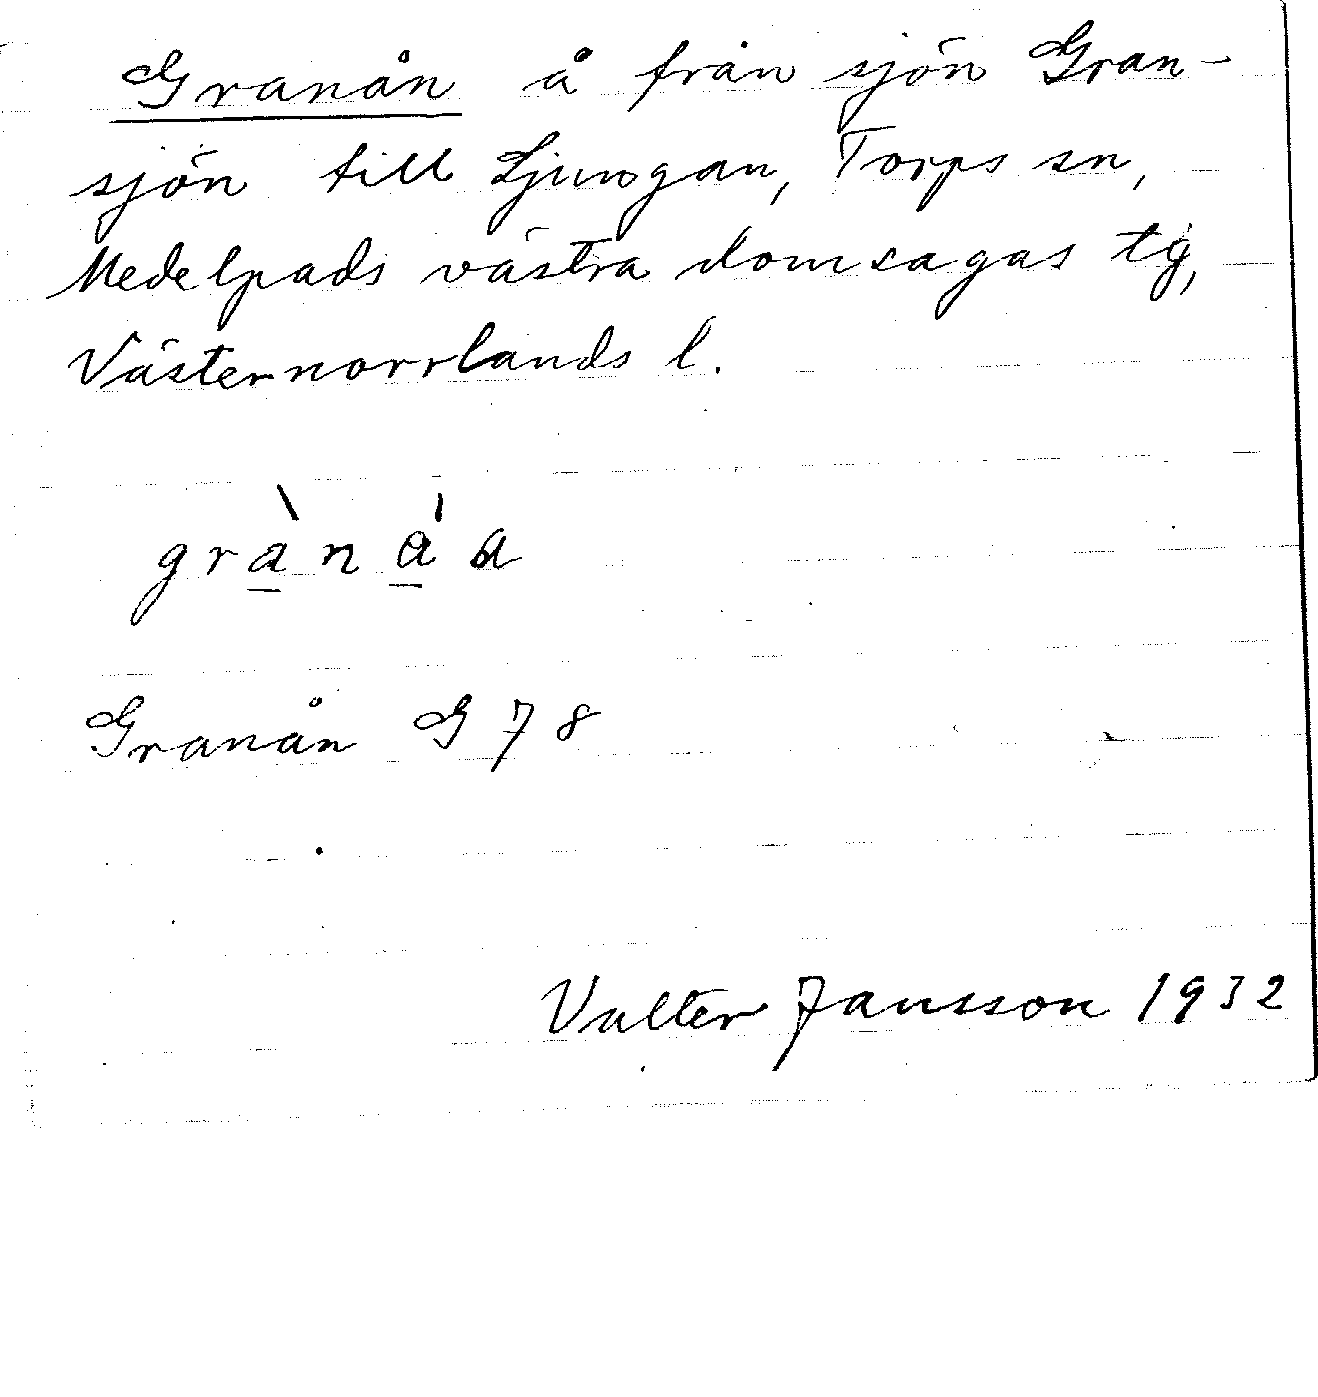 Granån å från sjön Gran-
sjön till Ljungan, Torps sn,
Medelpads västra domsagas tg,
Västernorrlands l.
grànåa
Granån G 78
Valter Jansson 1932